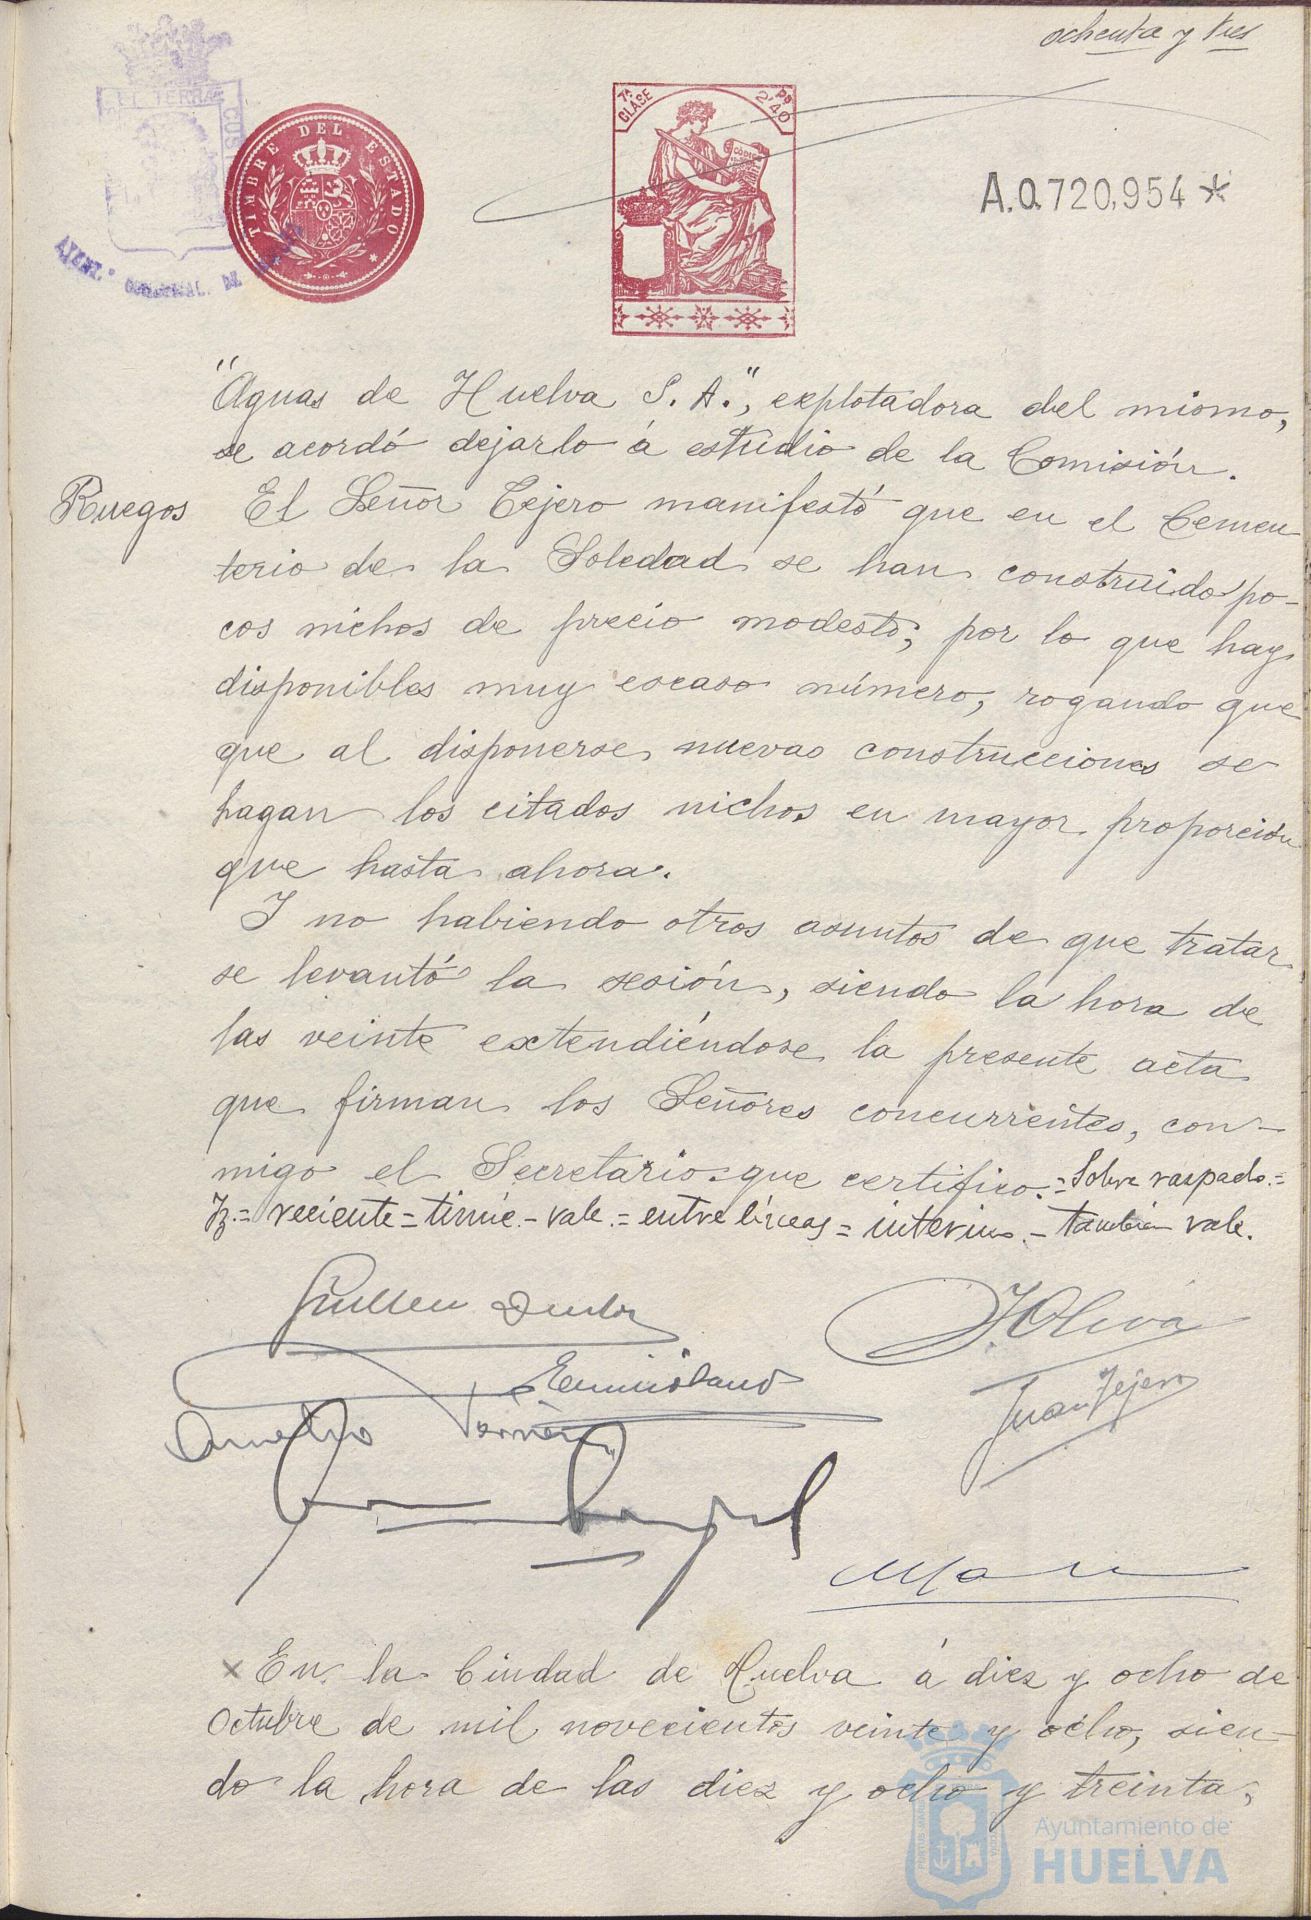 ochenta y tres
EL TERRÆ CUS
TIMBRE DEL ESTADO
7ª CLASE
Ps 2'40
A.0.720,954*
"Aguas de Huelva S. A.", explotadora del mismo,
se acordó dejarlo á estudio de la Comisión.
Ruegos El Señor Tejero manifestó que en el Cemen
terio de la Soledad se han construido po-
cos nichos de precio modesto, por lo que hay
disponibles muy escaso número, rogando que
que al disponerse nuevas construcciones se
hagan los citados nichos en mayor proporción
que hasta ahora.
Y no habiendo otros asuntos de que tratar
se levantó la sesión, siendo la hora de
las veinte extendiéndose la presente acta
que firman los Señores concurrentes, con-
migo el Secretario que certifico.=Sobre raspado.=
=reciente= =vale.=entre líneas=interino.-también vale.
J. Oliva
Juan Tejero
En la Ciudad de Huelva á diez y ocho de
Octubre de mil novecientos veinte y ocho, sien-
do la hora de las diez y ocho y treinta,
Ayuntamiento de
HUELVA